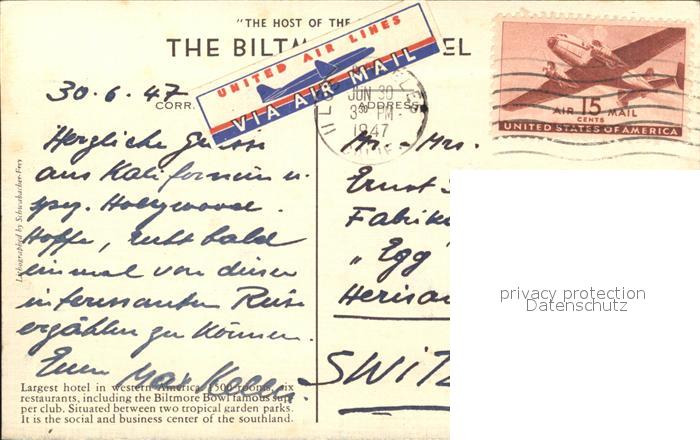 "THE HOST OF THE
THE BILTM EL
UNITED AIR LINES
VIA AIR MAIL
30.6.47
CORR.
ADDRESS
JUN 30
3 30 PM
1947
AIR 15 MAIL
CENTS
UNITED STATES OF AMERICA
Herzliche Grüsse
aus Kalifornien u.
spez. Hollywood.
Hoffe, recht bald
einmal von dieser
interessanten Reise
erzählen zu können.
Euer Max Keller.
Mr. - Mrs.
Ernst
Fabrik
"Egg
Herisau
SWITZ
privacy protection
Datenschutz
Lithographed by Schwabacher-Frey
Largest hotel in western America. 1500 rooms, six
restaurants, including the Biltmore Bowl famous sup-
per club. Situated between two tropical garden parks.
It is the social and business center of the southland.